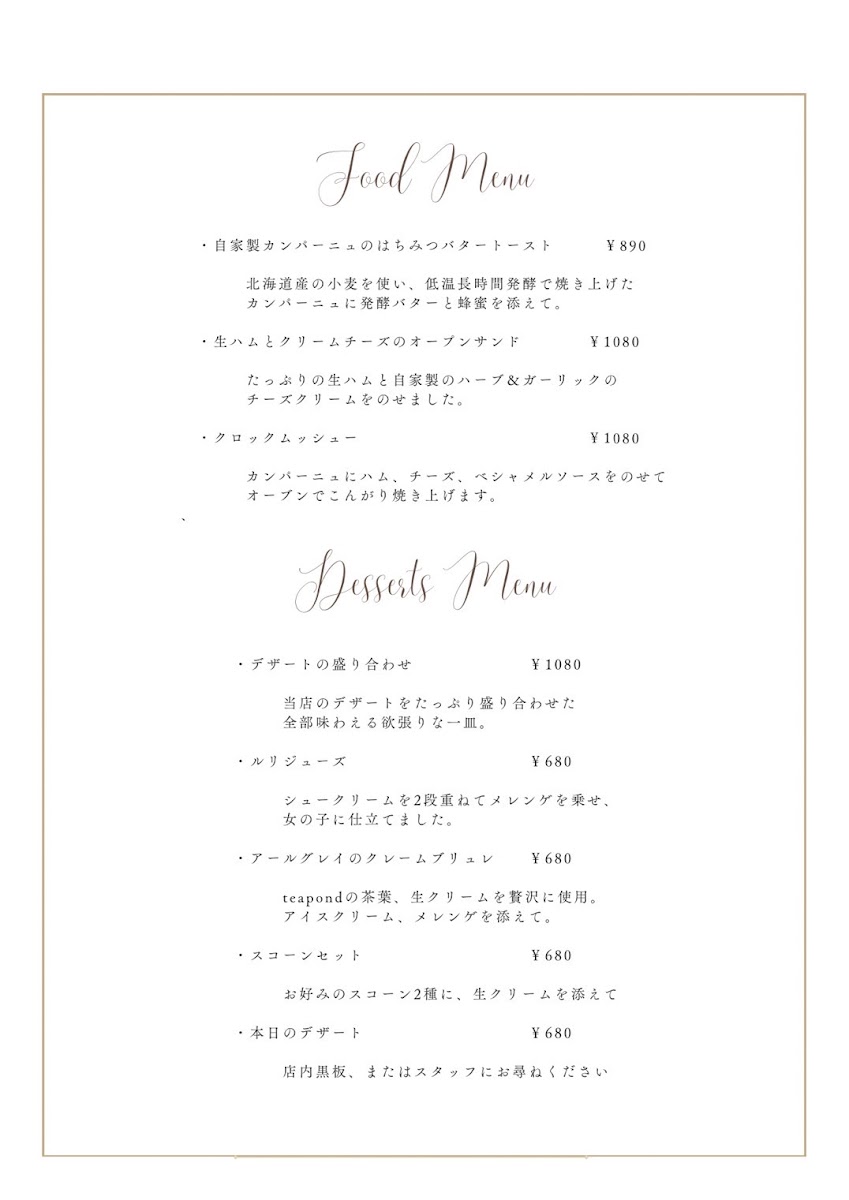 Food Menu
・自家製カンパーニュのはちみつバタートースト ¥890
北海道産の小麦を使い、低温長時間発酵で焼き上げた
カンパーニュに発酵バターと蜂蜜を添えて。
・生ハムとクリームチーズのオープンサンド ¥1080
たっぷりの生ハムと自家製のハーブ&ガーリックの
チーズクリームをのせました。
・クロックムッシュー ¥1080
カンパーニュにハム、チーズ、ベシャメルソースをのせて
オーブンでこんがり焼き上げます。
、
Desserts Menu
・デザートの盛り合わせ ¥1080
当店のデザートをたっぷり盛り合わせた
全部味わえる欲張りな一皿。
・ルリジューズ ¥680
シュークリームを2段重ねてメレンゲを乗せ、
女の子に仕立てました。
・アールグレイのクレームブリュレ ¥680
teapondの茶葉、生クリームを贅沢に使用。
アイスクリーム、メレンゲを添えて。
・スコーンセット ¥680
お好みのスコーン2種に、生クリームを添えて
・本日のデザート ¥680
店内黒板、またはスタッフにお尋ねください